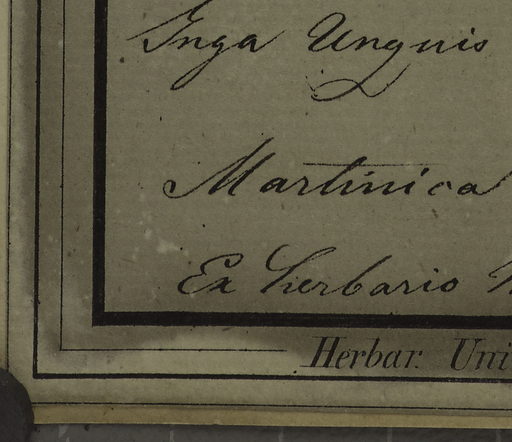 Inga Unguis
Martinica
Ex herbario
Herbar. Uni